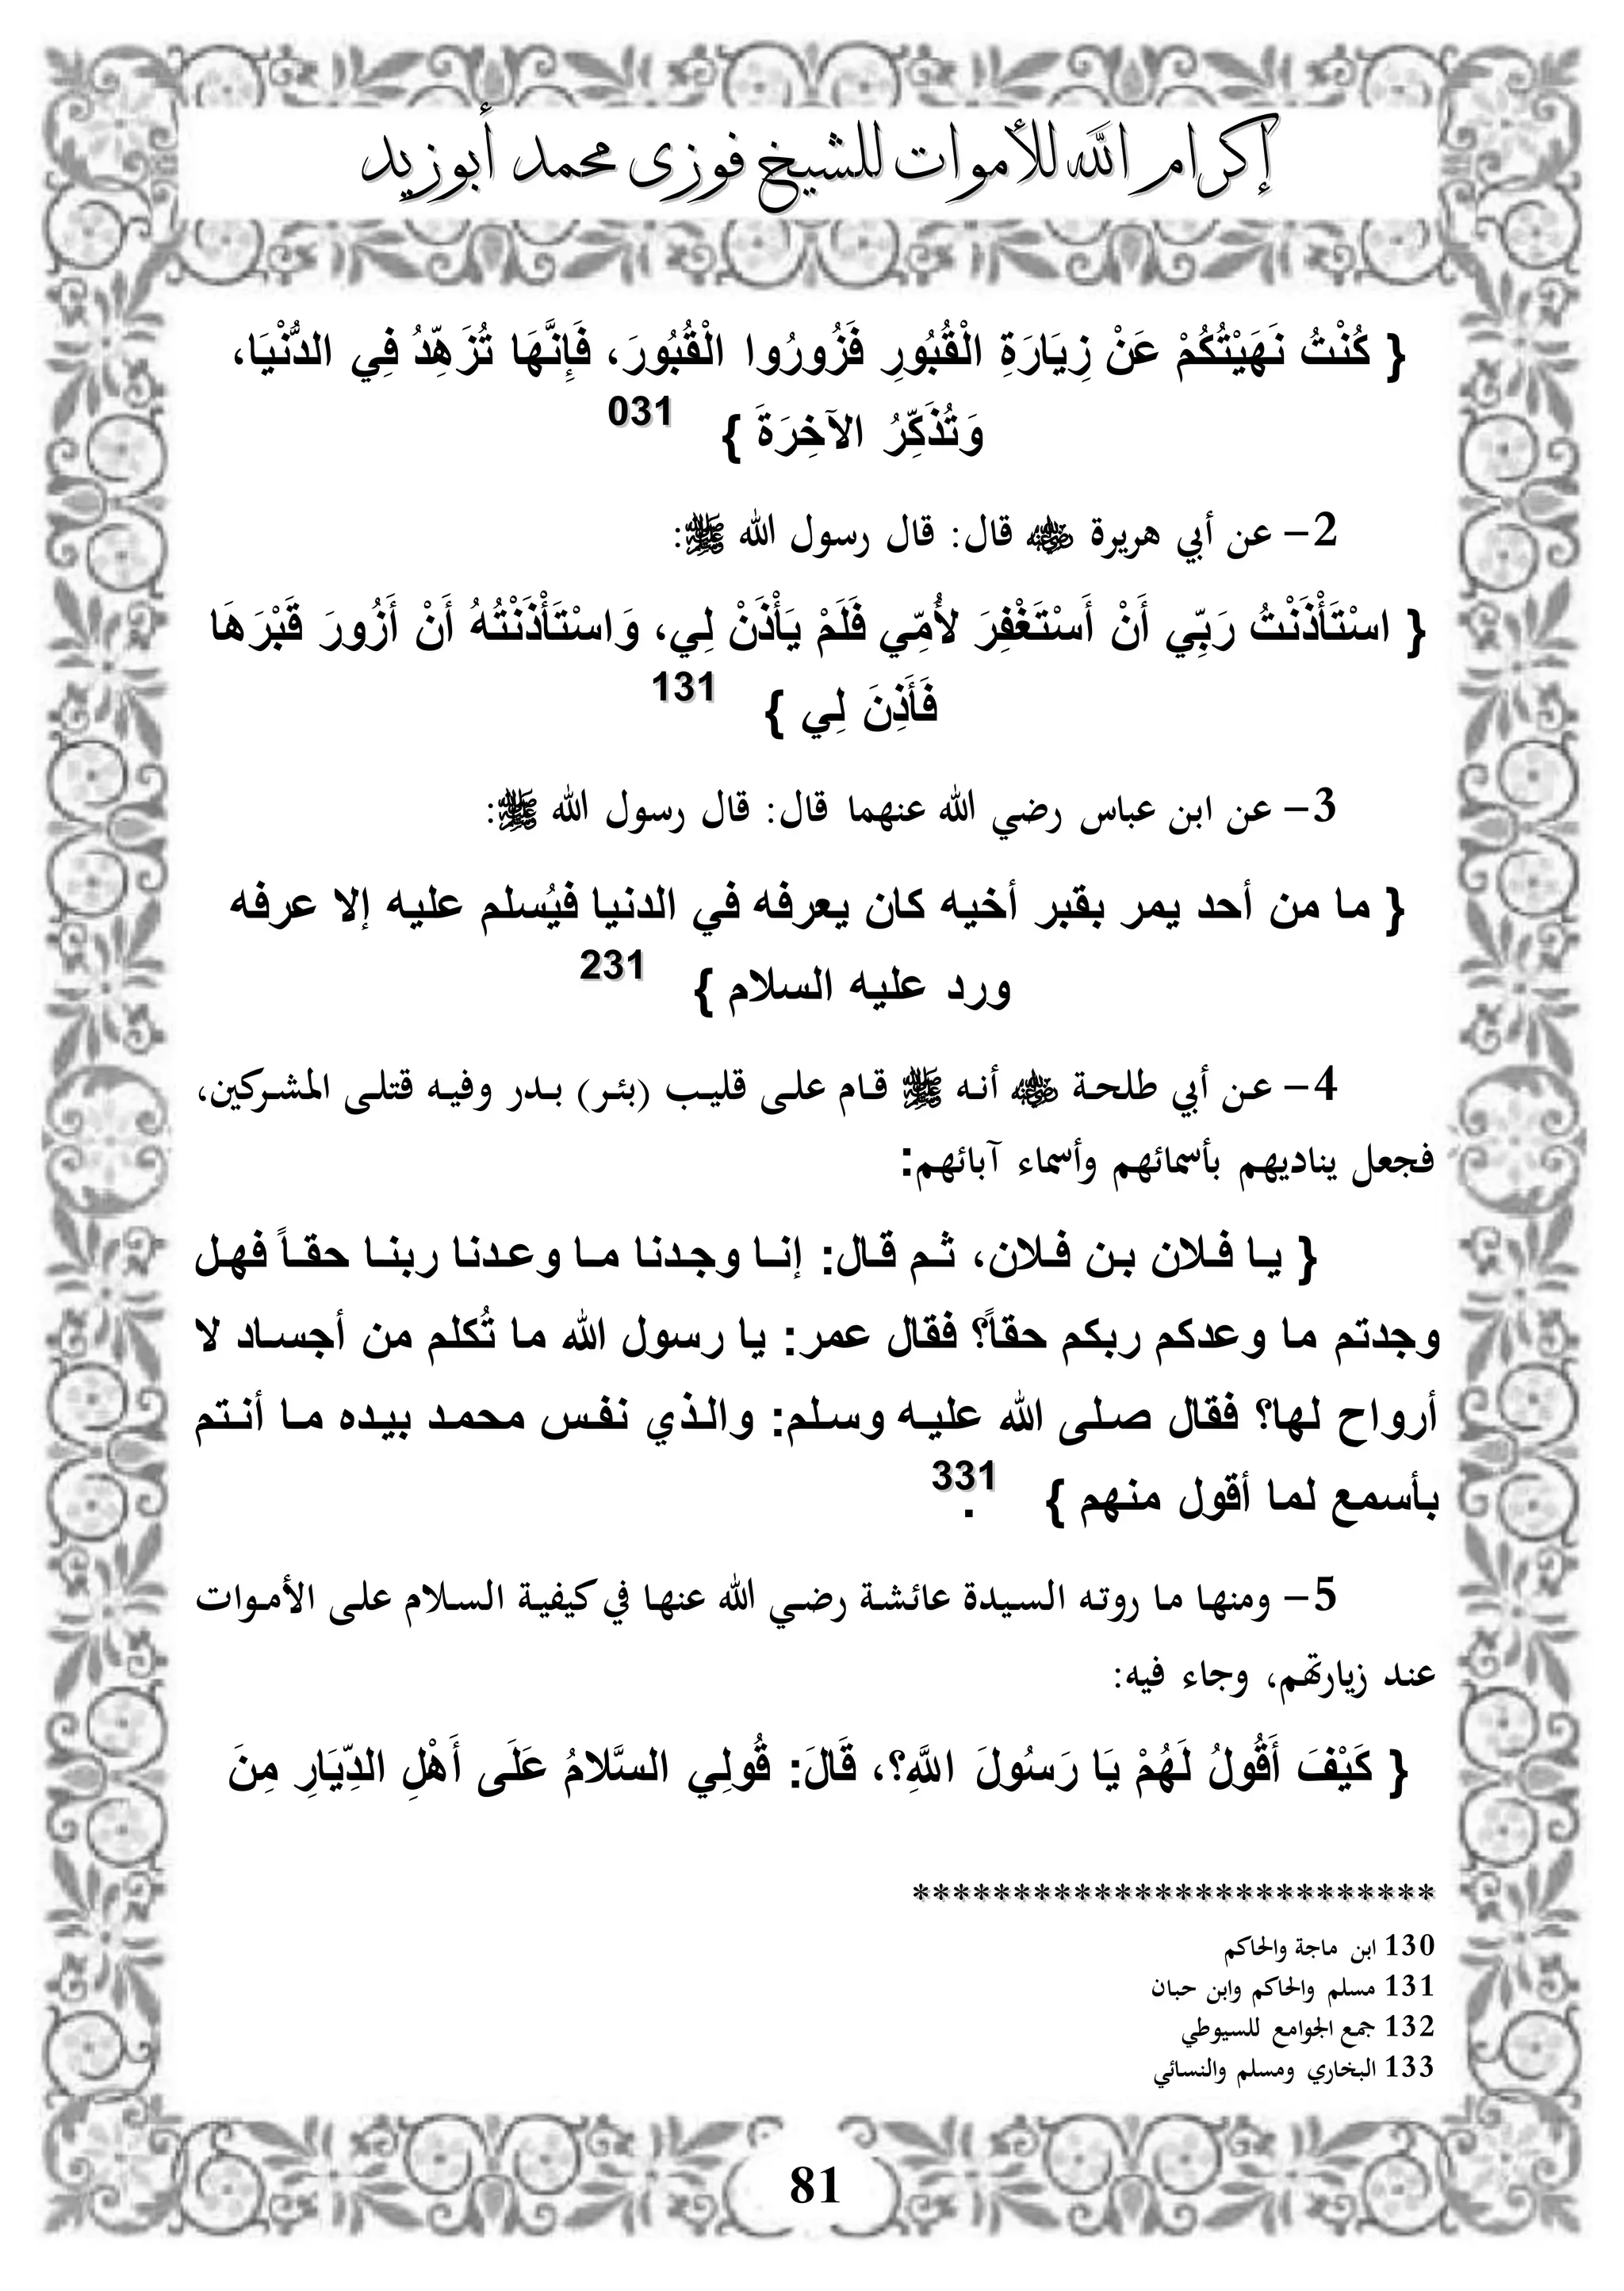 إكرام الله للأموات للشيخ فوزى محمد أبوزيد
{ كُنْتُ نَهَيْتُكُمْ عَنْ زِيَارَةِ الْقُبُورِ فَزُورُوا الْقُبُورَ، فَإِنَّهَا تُزَهِّدُ فِي الدُّنْيَا،
وَتُذَكِّرُ الآخِرَةَ } 031
2- عن أبي هريرة ؓ قال: قال رسول الله ﷺ:
{ اسْتَأْذَنْتُ رَبِّي أَنْ أَسْتَغْفِرَ لأُمِّي فَلَمْ يَأْذَنْ لِي، وَاسْتَأْذَنْتُهُ أَنْ أَزُورَ قَبْرَهَا
فَأَذِنَ لِي } 131
3- عن ابن عباس رضي الله عنهما قال: قال رسول الله ﷺ:
{ ما من أحد يمر بقبر أخيه كان يعرفه في الدنيا فيُسلم عليه إلا عرفه
ورد عليه السلام } 231
4- عن أبي طلحة ؓ أنه ﷺ قام على قليب (بئر) بدر وفيه قتلى المشركين،
فجعل يناديهم بأسمائهم وأسماء آبائهم:
{ يا فلان بن فلان، ثم قال: إنا وجدنا ما وعدنا ربنا حقاً فهل
وجدتم ما وعدكم ربكم حقاً؟ فقال عمر: يا رسول الله ما تُكلم من أجساد لا
أرواح لها؟ فقال صلى الله عليه وسلم: والذي نفس محمد بيده ما أنتم
بأسمع لما أقول منهم } 331.
5- ومنها ما روته السيدة عائشة رضي الله عنها في كيفية السلام على الأموات
عند زيارتهم، وجاء فيه:
{ كَيْفَ أَقُولُ لَهُمْ يَا رَسُولَ اللَّهِ؟، قَالَ: قُولِي السَّلامُ عَلَى أَهْلِ الدِّيَارِ مِنَ
**************************
130 ابن ماجة والحاكم
131 مسلم والحاكم وابن حبان
132 جمع الجوامع للسيوطي
133 البخاري ومسلم والنسائي
81